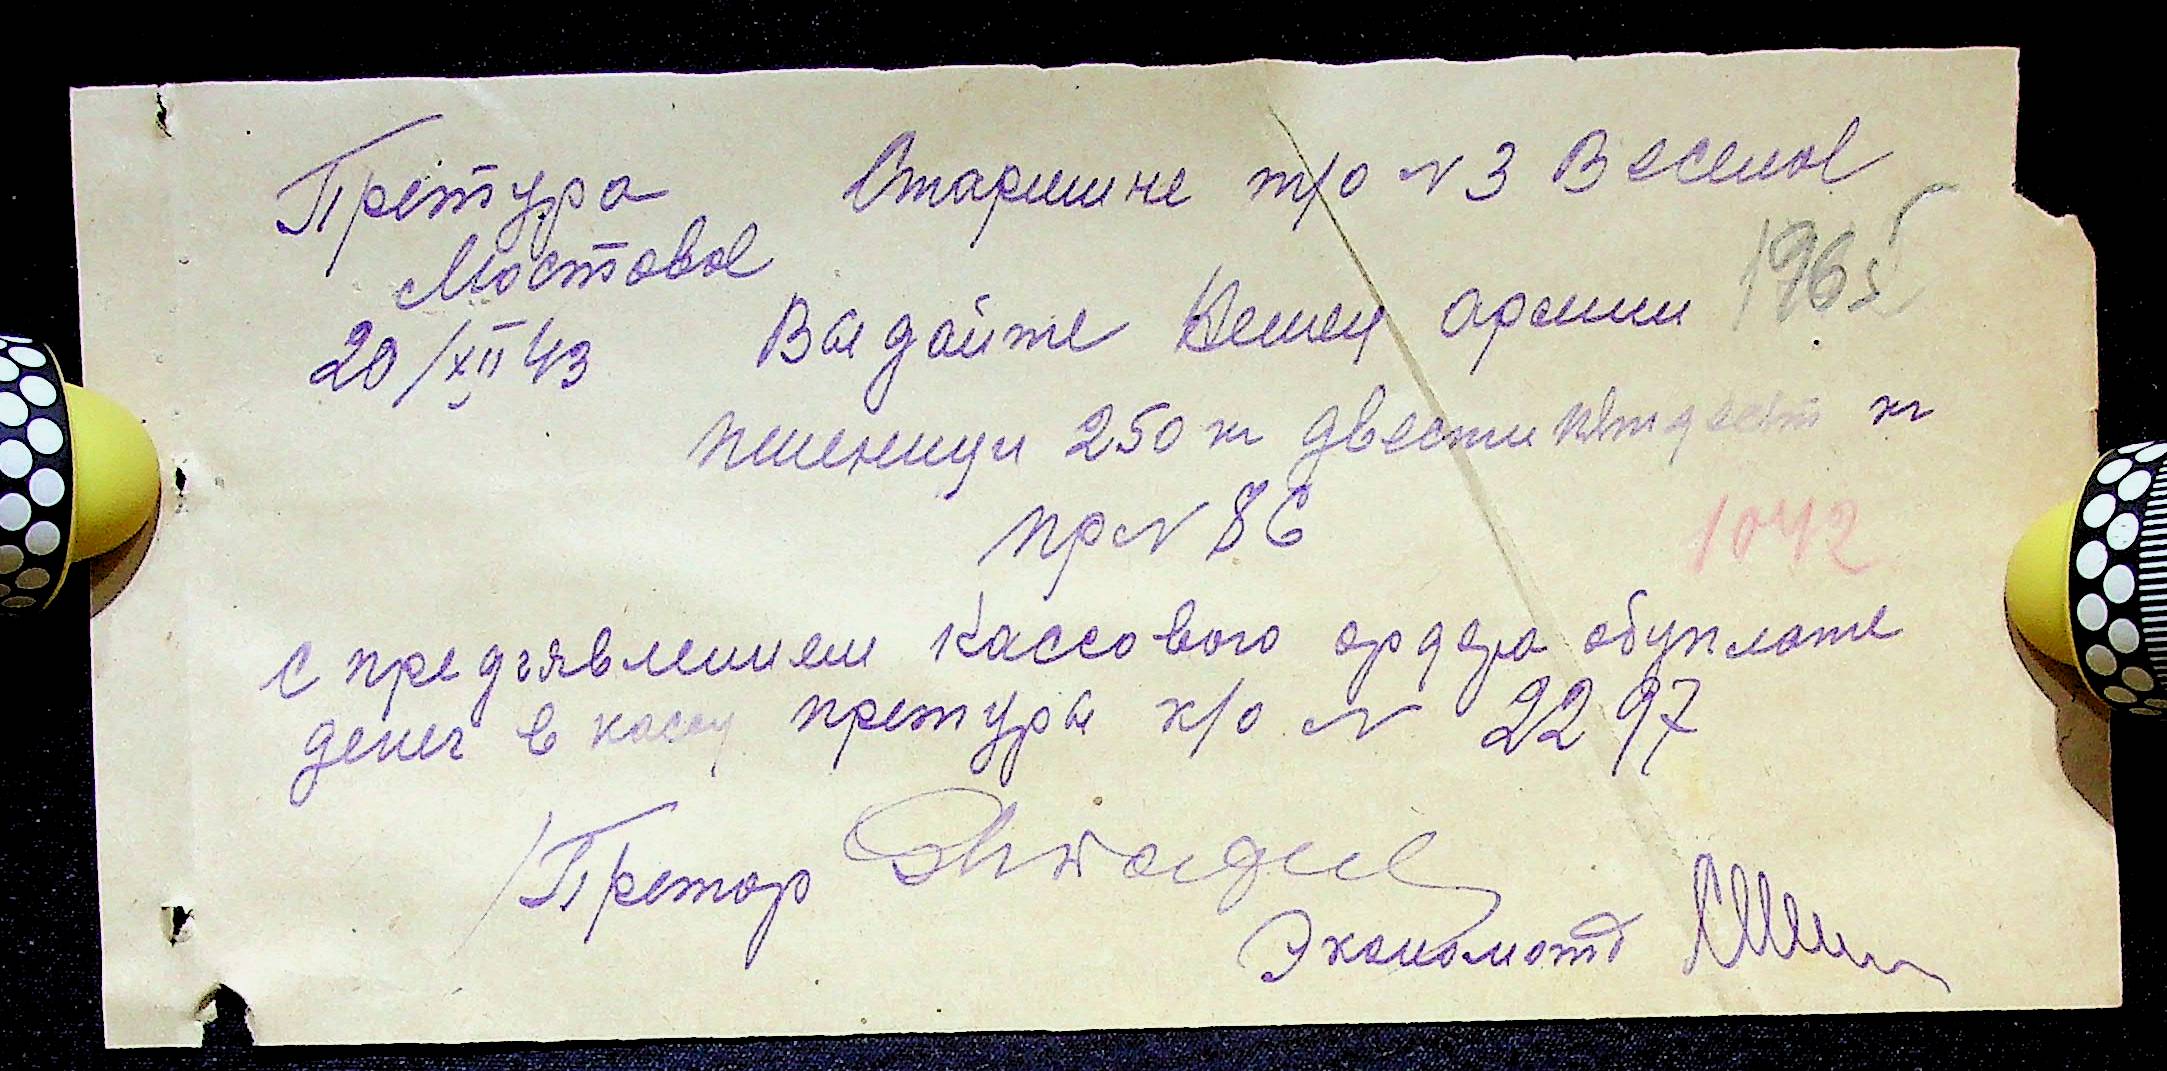 Претура
Мостовое
20/XII 43
Старшине т/о N 3 Веселое
1965
Выдайте Немец армии
пшеници 250 кг двести пятдесят кг
пр N 86
1042
с предъявлением кассового ордера об уплате
денег в кассу претуры к/о N 2297
Претор
Экономотд